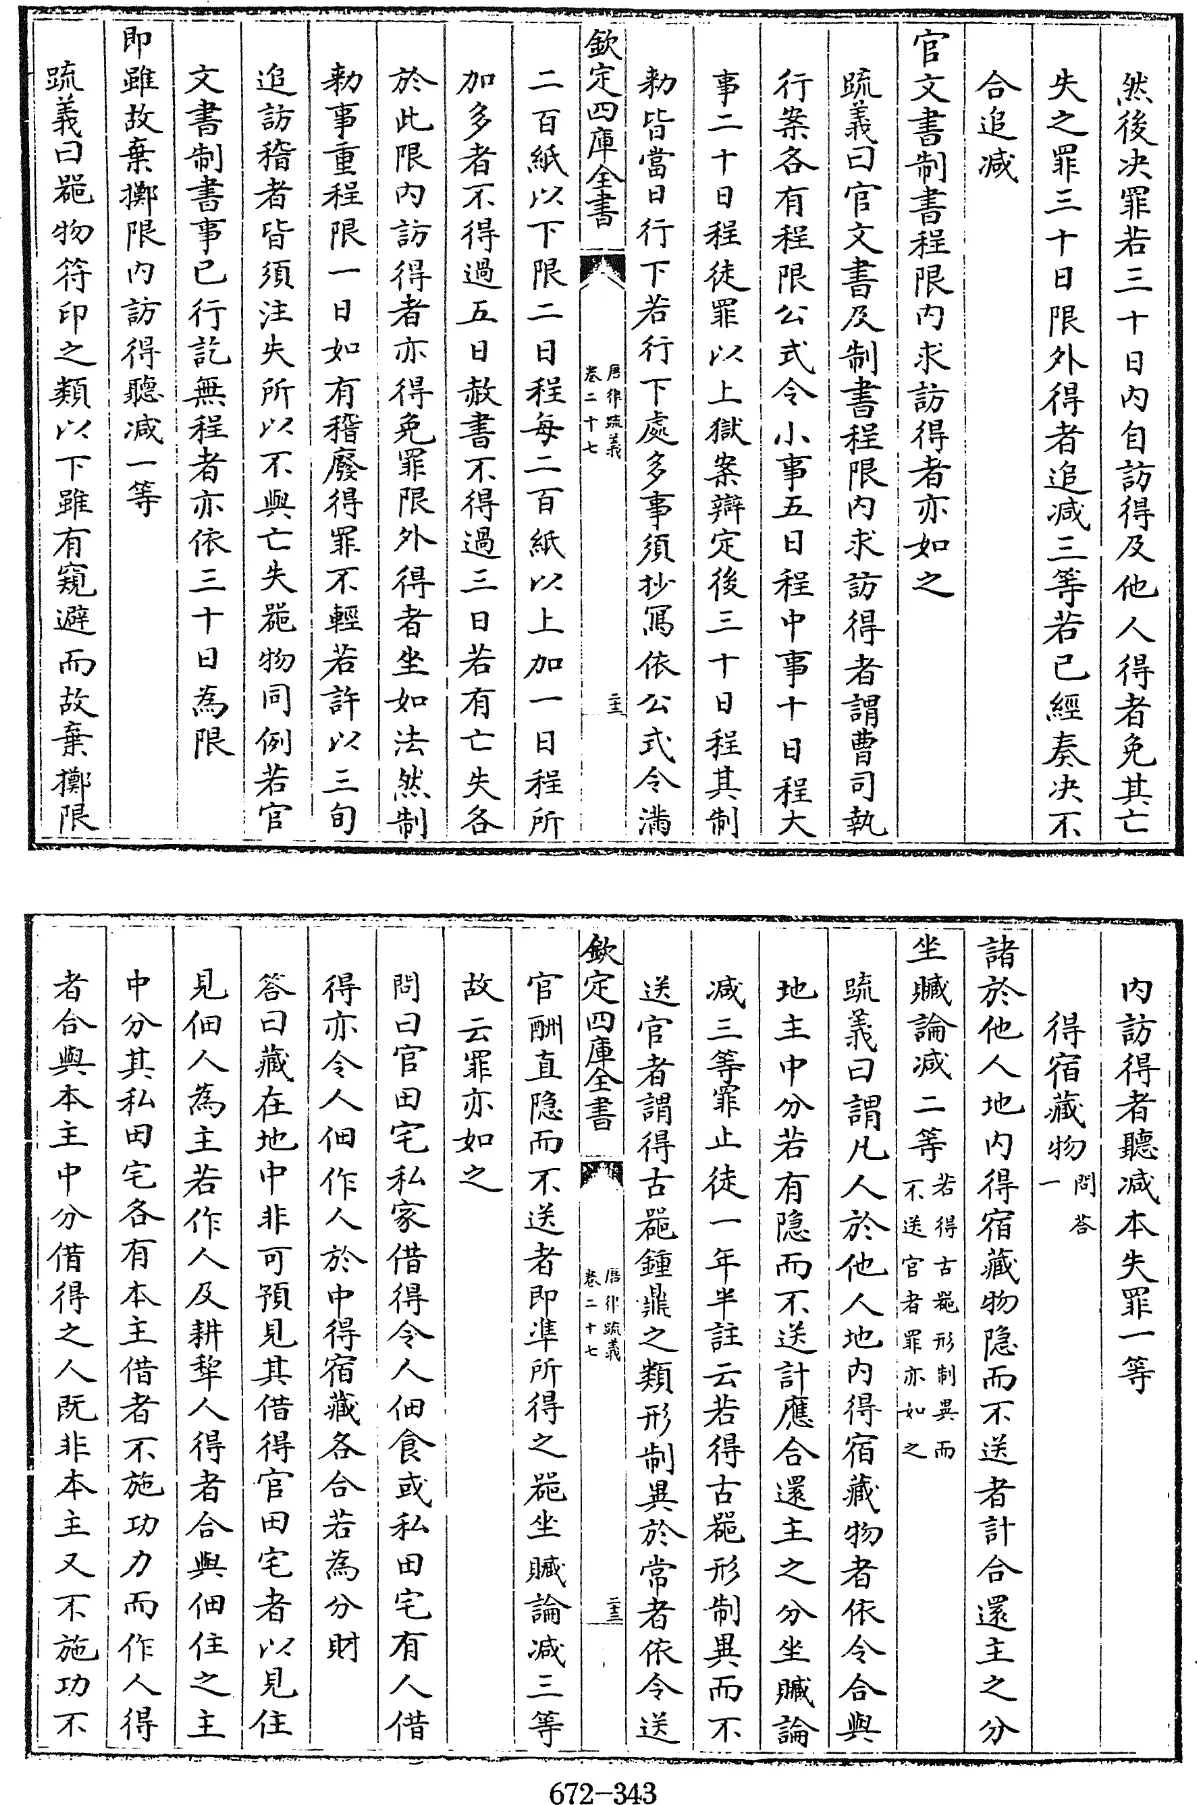 然後決罪若三十日內自訪得及他人得者免其亡
失之罪三十日限外得者追减三等若已經奏決不
合追减
官文書制書程限內求訪得者亦如之
疏義曰官文書及制書程限內求訪得者謂曹司執
行案各有程限公式令小事五日程中事十日程大
事二十日程徒罪以上獄案辯定後三十日程其制
勅皆當日行下若行下處多事須抄寫依公式令滿
欽定四庫全書
唐律疏義
卷二十七
二十三
二百紙以下限二日程每二百紙以上加一日程所
加多者不得過五日赦書不得過三日若有亡失各
於此限內訪得者亦得免罪限外得者坐如法然制
勅事重程限一日如有稽廢得罪不輕若許以三旬
追訪稽者皆須注失所以不與亡失器物同例若官
文書制書事已行訖無程者亦依三十日為限
即雖故棄擲限內訪得聽减一等
疏義曰器物符印之類以下雖有窺避而故棄擲限
內訪得者聽减本失罪一等
得宿藏物
問答
一
諸於他人地內得宿藏物隱而不送者計合還主之分
坐贓論减二等
若得古器形制異而
不送官者罪亦如之
疏義曰謂凡人於他人地內得宿藏物者依令合與
地主中分若有隱而不送計應合還主之分坐贓論
减三等罪止徒一年半註云若得古器形制異而不
送官者謂得古器鍾鼎之類形制異於常者依令送
欽定四庫全書
唐律疏義
卷二十七
二十三
官酬直隱而不送者即準所得之器坐贓論减三等
故云罪亦如之
問曰官田宅私家借得令人佃食或私田宅有人借
得亦令人佃作人於中得宿藏各合若為分財
答曰藏在地中非可預見其借得官田宅者以見住
見佃人為主若作人及耕犂人得者合與佃住之主
中分其私田宅各有本主借者不施功力而作人得
者合與本主中分借得之人既非本主又不施功不
672-343